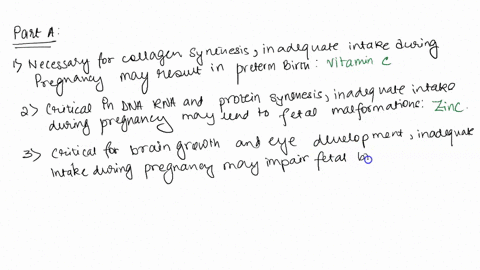 Part A:
1) Necessary for collagen synthesis, inadequate intake during
Pregnancy may result in preterm birth: Vitamin C
2) Critical in DNA RNA and protein synthesis, inadequate intake
during pregnancy may lead to fetal malformations: Zinc.
3) Critical for brain growth and eye development, inadequate
Intake during pregnancy may impair fetal b